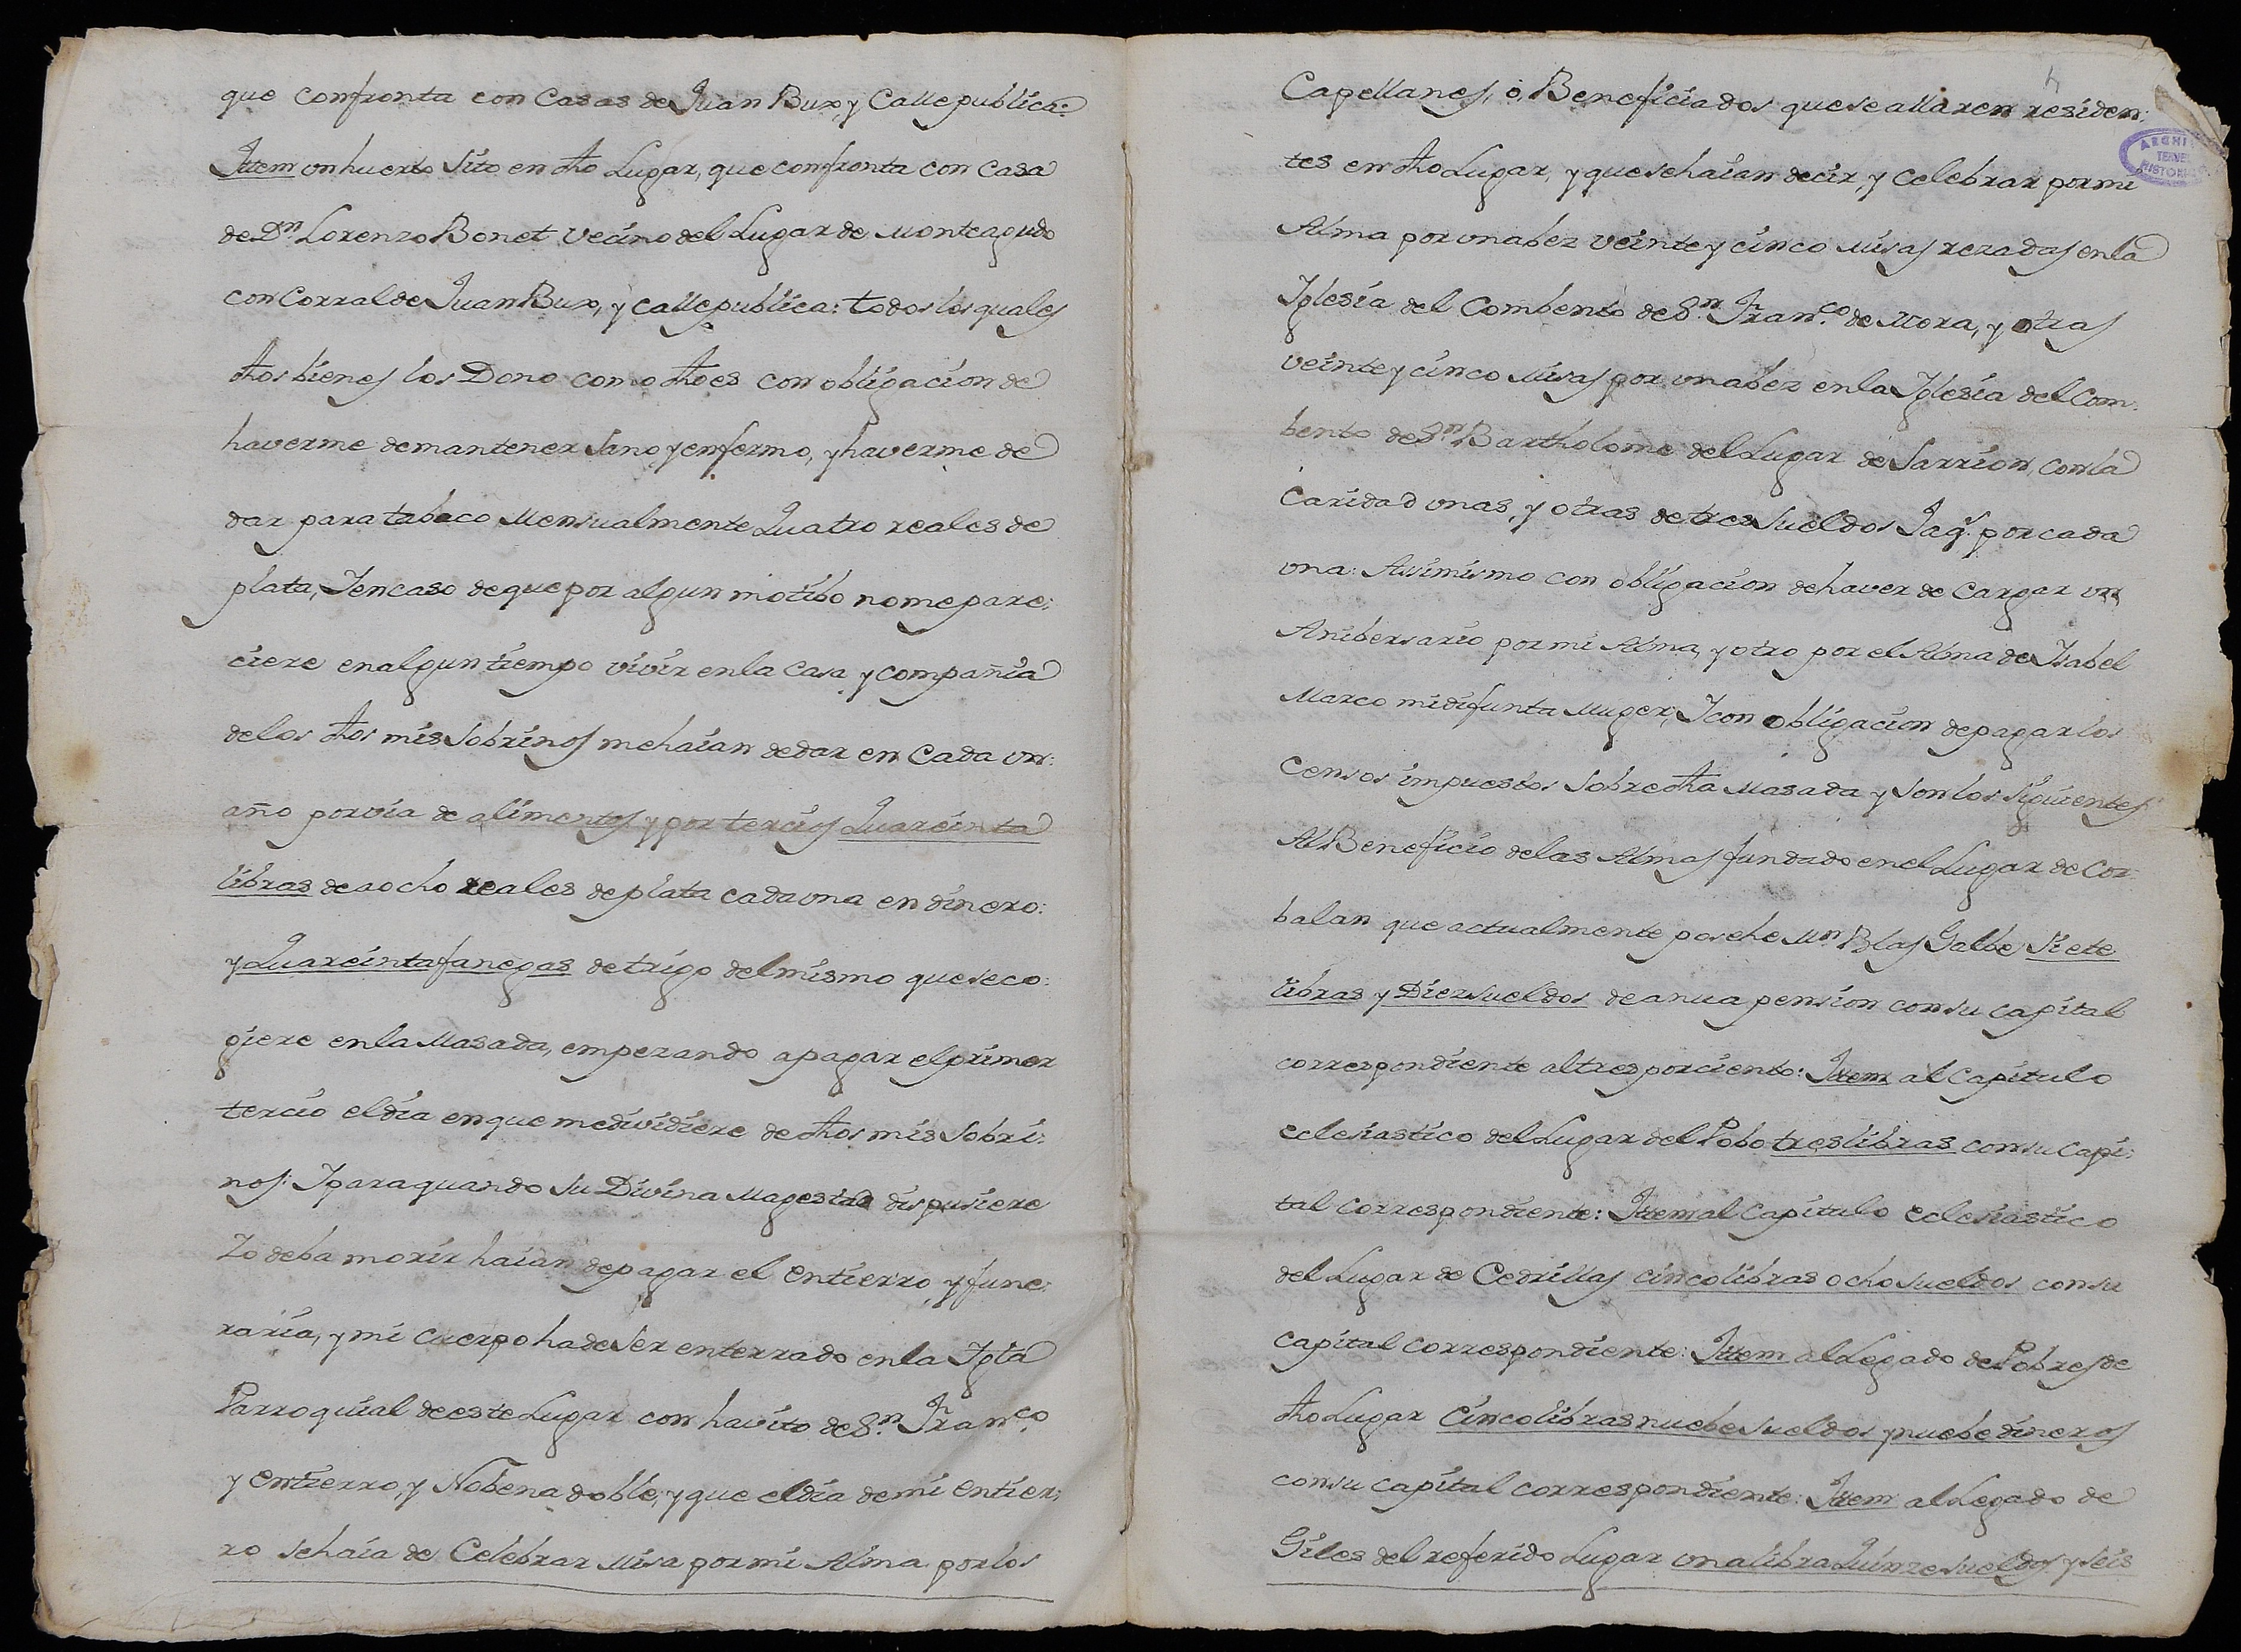 que confronta con Casas de Juan Bux, y Calle publica:
Ittem un huerto sito en dho Lugar, que confronta con casa
de Dn. Lorenzo Bonet vecino del Lugar de Monteagudo
con Corral de Juan Bux, y calle publica: todos los quales
dhos bienes los Dono como dho es con obligacion de
haverme de mantener sano y enfermo, y haverme de
dar para tabaco Mensualmente Quatro reales de
plata, Y en caso de que por algun motibo no me pare:
ciere en algun tiempo vivir en la casa y compañia
de los dhos mis sobrinos me haian de dar en cada un:
año por via de alimentos y por tercios Quareinta
libras de a ocho reales de plata cada una en dinero:
y Quareinta fanegas de trigo del mismo que se co:
giere en la Masada, empezando a pagar el primer
tercio el dia en que me dividiere de dhos mis sobri:
nos: Y para quando su Divina Magestad dispusiere
Yo deba morir haian de pagar el entierro, y fune:
raria, y mi cuerpo ha de ser enterrado en la Igla
Parroquial de este Lugar con havito de Sn. Franco.
y entierro, y Nobena doble, y que el dia de mi entier:
ro se haia de Celebrar Misa por mi Alma por los
Capellanes, ò, Beneficiados que se allaren residen:
tes en dho Lugar, y que se haian decir, y celebrar por mi
Alma por una bez veinte y cinco Misas rezadas en la
Iglesia del Combento de Sn. Franco. de Mora, y otras
veinte y cinco Misas por una bez en la Iglesia del Com:
bento de Sn. Bartholome del Lugar de Sarrion, con la
caridad unas, y otras de tres sueldos Jaqs. por cada
una: Assimismo con obligacion de haver de Cargar un
Anibersario por mi Alma, y otro por el Alma de Isabel
Marco mi difunta Muger, Y con obligacion de pagar los
Censos impuestos sobre dha Masada y son los siguientes
Al Beneficio de las Almas fundado en el Lugar de Cor:
balan que actualmente posehe Mn. Blas Galbe Siete
libras y Diez sueldos de anua pension con su capital
correspondiente al tres por ciento: Ittem al Capitulo
eclesiastico del Lugar del Pobo tres libras con su capi:
tal correspondiente: Ittem al Capitulo eclesiastico
del Lugar de Cedrillas cinco libras ocho sueldos con su
capital correspondiente: Ittem al Legado de Pobres de
dho Lugar cinco libras nuebe sueldos y nuebe dineros
con su capital correspondiente: Ittem al Legado de
Giles del referido Lugar una libra Quinze sueldos y seis